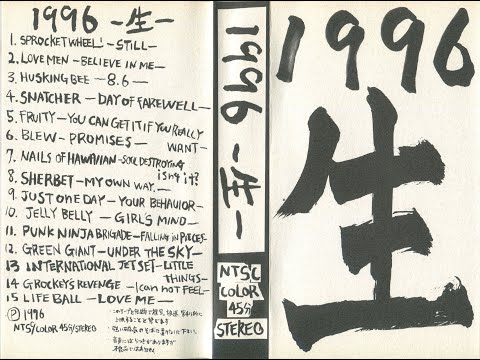 1996 -生-
1. SPROCKET WHEEL -STILL-
2. LOVE MEN -BELIEVE IN ME-
3. HUSKING BEE -8.6-
4. SNATCHER -DAY OF FAREWELL-
5. FRUITY -YOU CAN GET IT IF YOU REALLY
WANT-
6. BLEW -PROMISES-
7. NAILS OF HAWAIIAN -SOUL DESTROYING
isn't it?
8. SHERBET -MY OWN WAY.-
9. JUST ONE DAY -YOUR BEHAVIOR-
10. JELLY BELLY -GIRL'S MIND-
11. PUNK NINJA BRIGADE -FALLING IN PIECES-
12. GREEN GIANT -UNDER THE SKY-
13 INTERNATIONAL JET SET -LITTLE
THINGS-
14 GROCKEYS REVENGE -I can not FEEL-
15 LIFE BALL -LOVE ME-
Ⓟ 1996
NTSC/COLOR 45分/STEREO
1996 -生-
NTSC
COLOR
45分
STEREO
1996
生